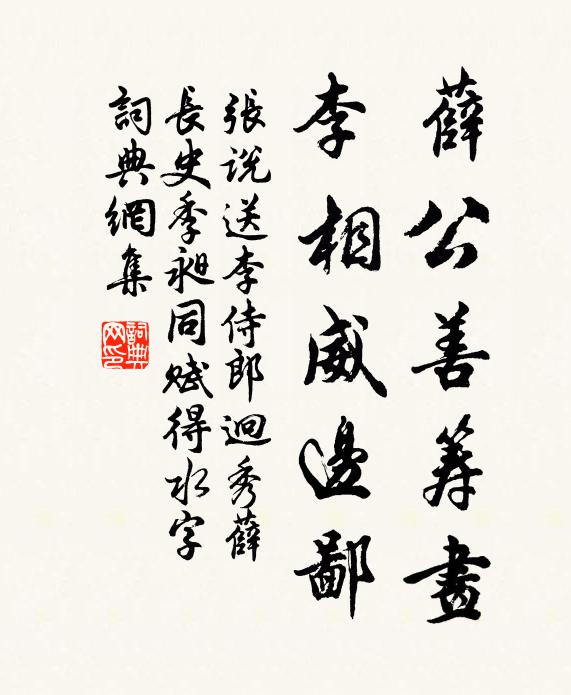 薛公善筹畫
李相威邊鄙
張说送李侍郎迥秀薛
長史季昶同赋得水字
詞典網集
詞典
网印